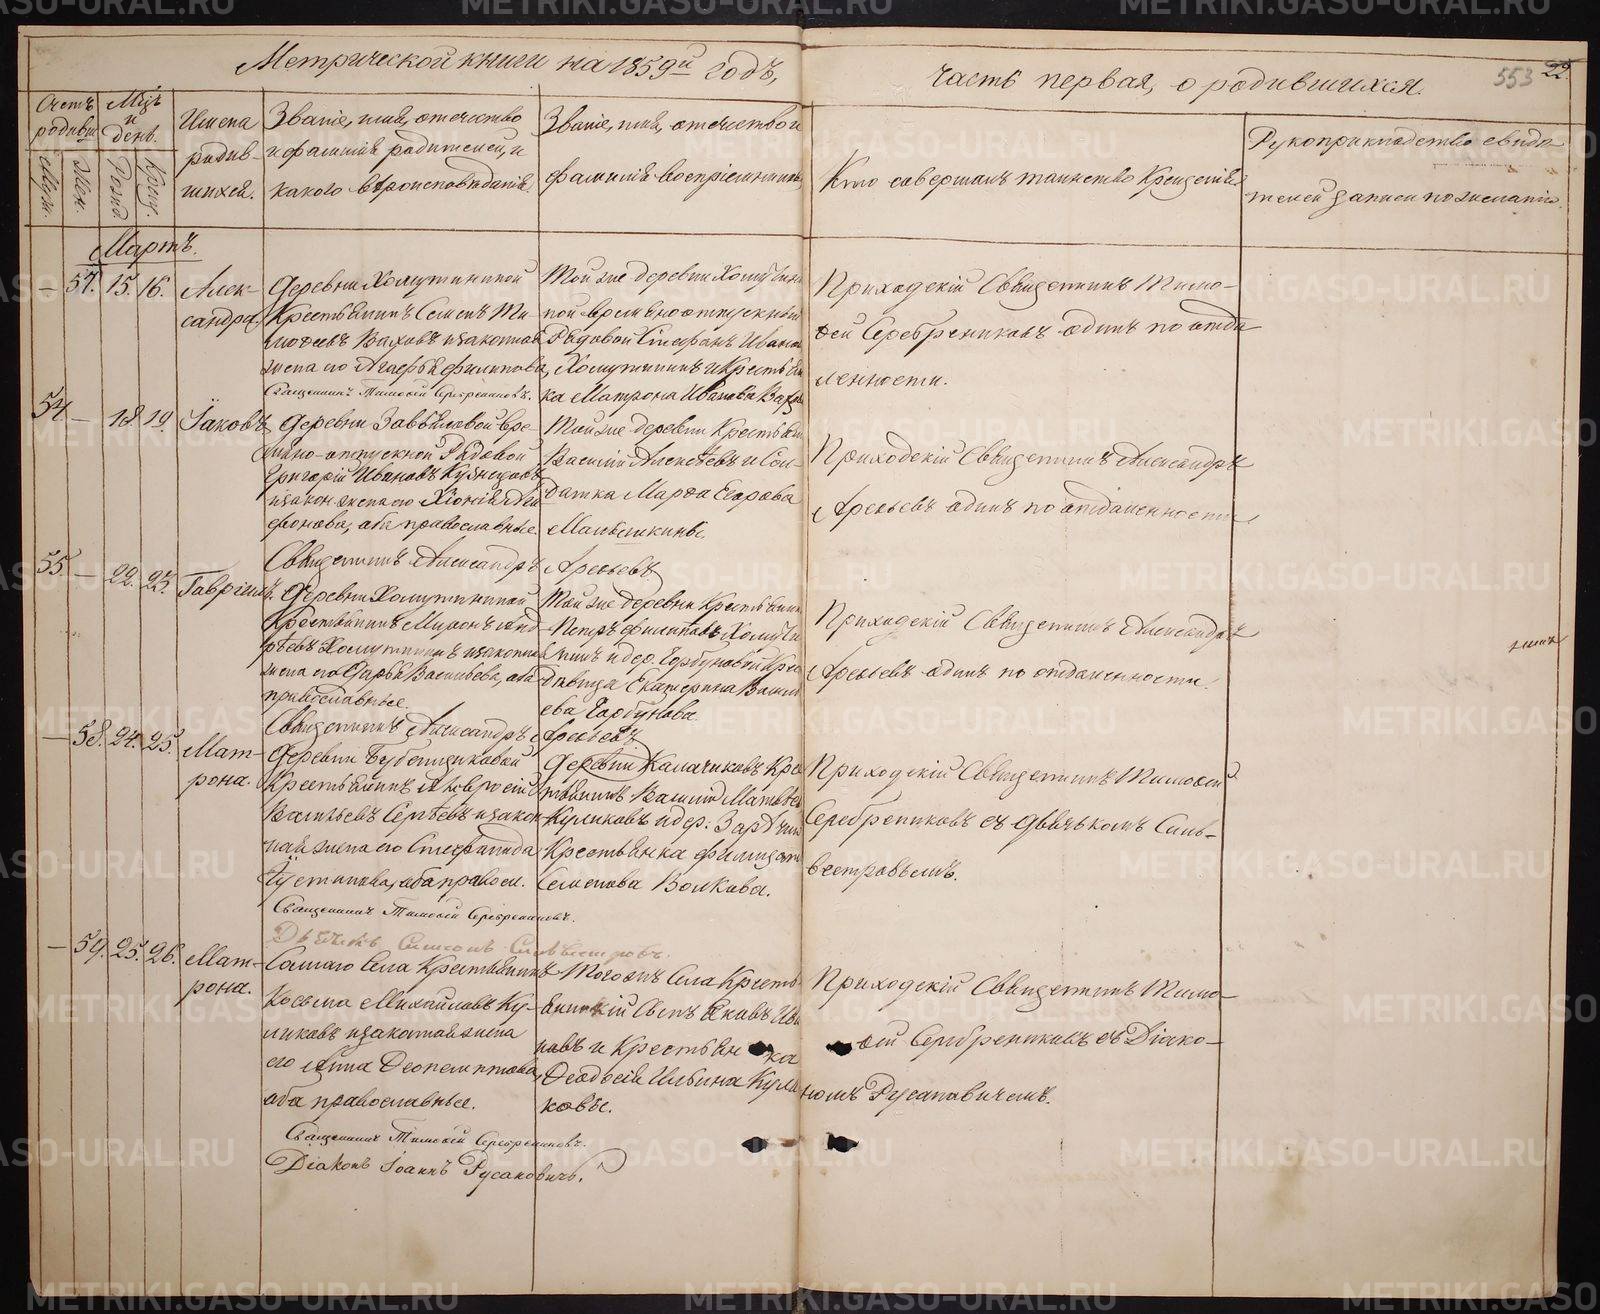 Метрической книги на 1859й годъ,
часть первая, о родившихся.
553 22.
Счетъ родивш.
Мѣц и день.
Муж.
Жен.
Рожд.
Крещ.
Имена родив-
шихся.
Званіе, имя, отечество
и фамилія родителей, и
какого вѣроисповѣданія.
Званіе, имя, отечество и
фамилія воспріемниковъ
Кто совершалъ таинство Крещенія
Рукоприкладство свидѣ
телей записи по желанію.
Мартъ.
— 57. 15. 16. Алек-
сандра.
Деревни Хомутининой
Крестьянинъ Семенъ Ти-
моѳеевъ Валовъ и законная
жена его Агафья Филипова,
Священникъ Тимоѳей Серебренниковъ.
Той же деревни Хомутини
ной временноотпускный
Рядовой Стефанъ Иванов
Хомутининъ и Крестьян
ка Матрона Иванова
Приходскій Священникъ Тимо-
ѳей Серебренниковъ одинъ по отда
ленности.
54. — 18. 19. Іаковъ
Деревни Завьяловой вре-
менно-отпускной Рядовой
Григорій Ивановъ Кузнецовъ
и закон. жена его Хіонія Ага
фонова, оба православные.
Священникъ Александръ Арсеьевъ
Той же деревни Крестьянин
Василій Алексѣевъ и Сол-
датка Марѳа Егорова
Малышкины.
Приходскій Священникъ Александръ
Арсеьевъ одинъ по отдаленности
55 — 22. 23. Гавріилъ.
Деревни Хомутининой
Крестьянинъ Миронъ Анд-
рѣевъ Хомутининъ и законная
жена его Дарья Васильева, оба
православные.
Священникъ Александръ Арсеьевъ.
Той же деревни Крестьянин
Петръ Филиповъ Хомути
нинъ и дер. Горбуновой Крес
дѣвица Екатерина Василь
ева Горбунова.
Приходскій Священникъ Александръ
Арсеьевъ одинъ по отдаленности.
— 58. 24. 25. Мат-
рона.
Деревни Бубенщиковой
Крестьянинъ Амвросій
Васильевъ Сергѣевъ и закон-
ная жена его Степанида
Іустинова, оба правосл.
Священникъ Тимоѳей Серебренниковъ.
Дьячекъ Симеонъ Сильвестровъ.
Деревни Калачиковъ Крес
тьянинъ Василій Матвѣев
Куликовъ и дер: Зарѣчной
Крестьянка Филицата
Семенова Волкова.
Приходскій Священникъ Тимоѳей
Серебрениковъ съ Дьячькомъ Силь-
вестровымъ.
— 59. 25. 26. Мат-
рона.
Самаго Села Крестьянинъ
Косьма Михайловъ Ку-
ликовъ и законная жена
его Анна Феопемптова,
оба православные.
Священникъ Тимоѳей Серебренниковъ.
Діаконъ Іоаннъ Русановичъ.
Тогожъ Села Кресть
янинскій Сынъ Яковъ Ива
новъ и Крестьянка
Ѳеодосія Ильина Кули
ковы.
Приходскій Священникъ Тимо-
ѳей Серебренниковъ съ Діако-
номъ Русановичемъ.
METRIKI.GASO-URAL.RU